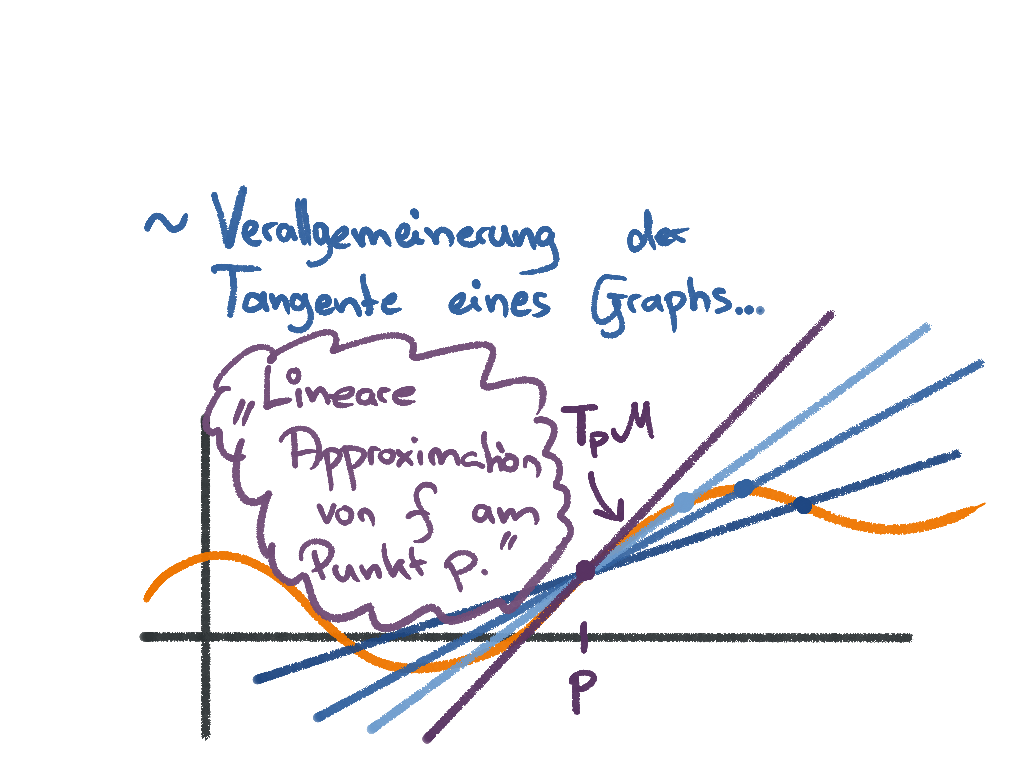 ~ Verallgemeinerung der
Tangente eines Graphs...
"Lineare
Approximation
von f am
Punkt p."
TₚM
p